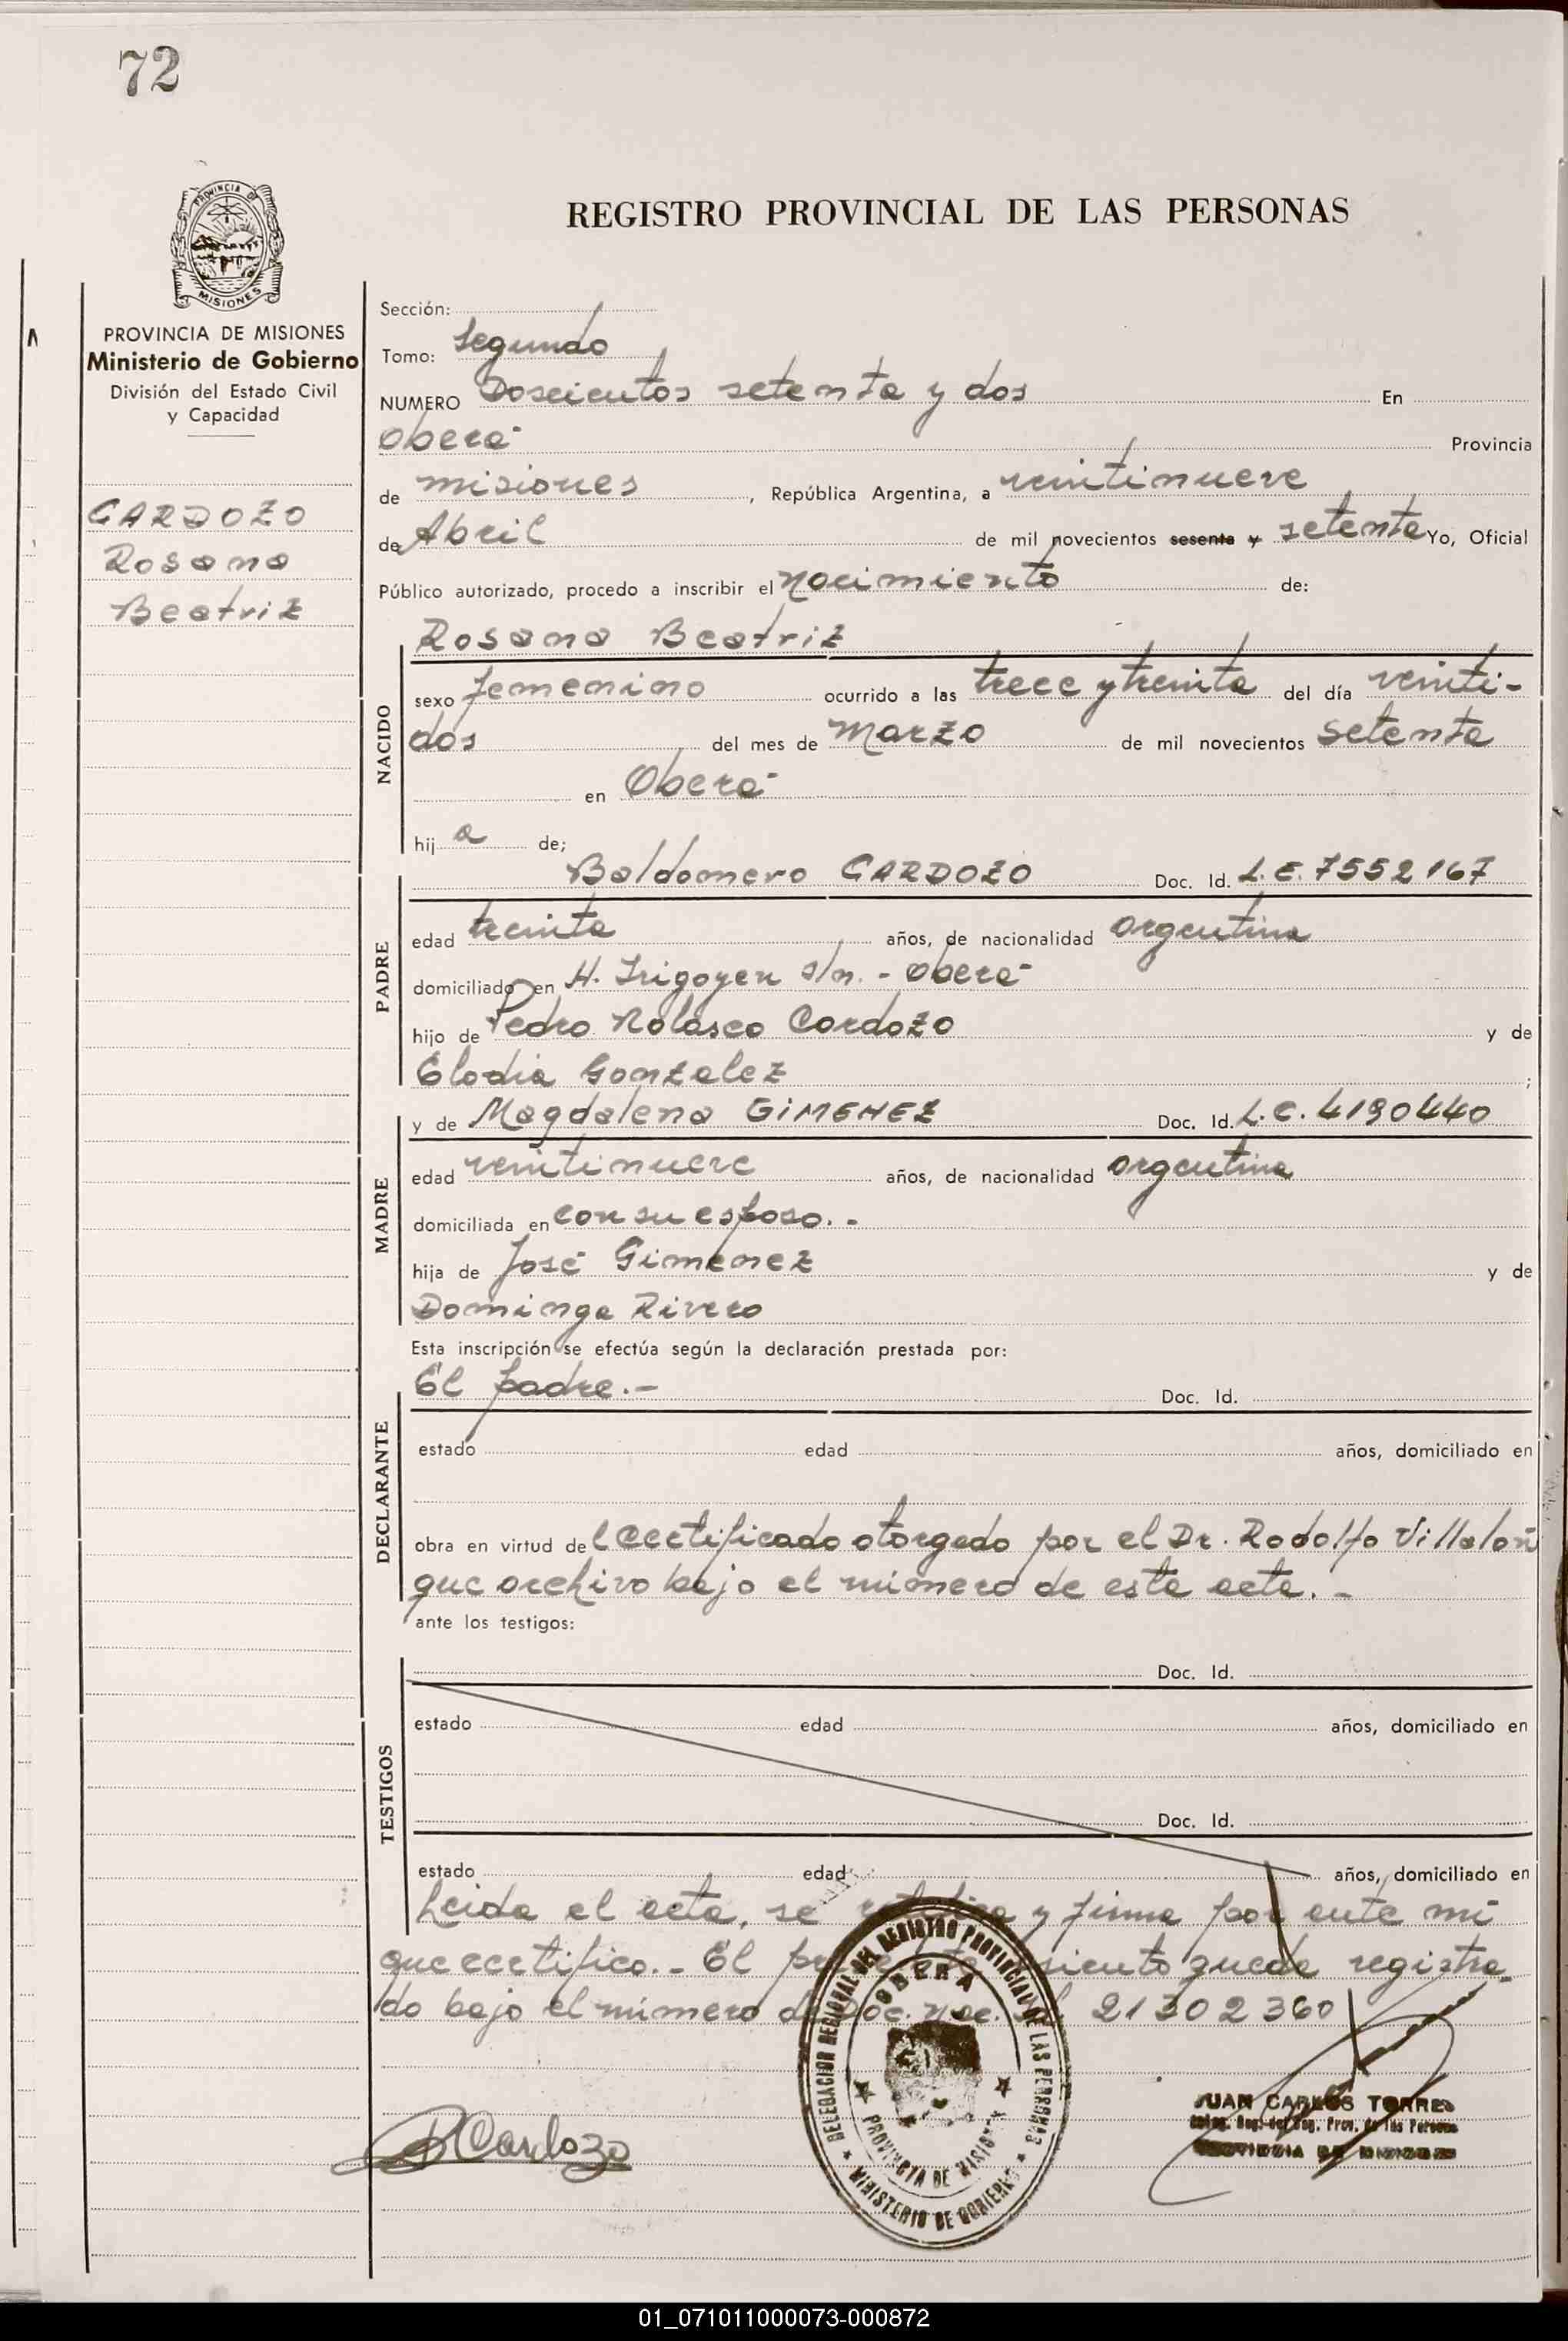 72
PROVINCIA DE
MISIONES
REGISTRO PROVINCIAL DE LAS PERSONAS
PROVINCIA DE MISIONES
Ministerio de Gobierno
División del Estado Civil
y Capacidad
CARDOZO
Rosana
Beatriz
Sección:
Tomo: Segundo
NUMERO Doscientos setenta y dos En
Oberá Provincia
de Misiones, República Argentina, a veintinueve
de Abril de mil novecientos sesenta y setenta Yo, Oficial
Público autorizado, procedo a inscribir el nacimiento de:
Rosana Beatriz
NACIDO
sexo femenino ocurrido a las trece y treinta del día veinti-
dos del mes de Marzo de mil novecientos setenta
en Oberá
hij a de;
Baldomero CARDOZO Doc. Id. L.E. 7552167
PADRE
edad treinta años, de nacionalidad argentina
domiciliado en H. Irigoyen s/n. - Oberá
hijo de Pedro Nolasco Cardozo y de
Elodia Gonzalez ;
y de Magdalena GIMENEZ Doc. Id. L.C. 4190440
MADRE
edad veintinueve años, de nacionalidad argentina
domiciliada en con su esposo. -
hija de José Gimenez y de
Dominga Rivero
Esta inscripción se efectúa según la declaración prestada por:
El padre.- Doc. Id.
DECLARANTE
estado edad años, domiciliado en
obra en virtud de l certificado otorgado por el Dr. Rodolfo Villalón
que archivo bajo el número de esta acta. -
ante los testigos:
Doc. Id.
TESTIGOS
estado edad años, domiciliado en
Doc. Id.
estado edad años, domiciliado en
Leida el acta, se ratifica y firma por ante mi
que certifico. - El presente asiento queda registra-
do bajo el número de Doc. Nac. 21302360
DELEGACION REGIONAL DEL REGISTRO PROVINCIAL DE LAS PERSONAS
OBERA
PROVINCIA DE MISIONES
MINISTERIO DE GOBIERNO
B Cardozo
JUAN CARLOS TORRES
Reg. Prov. de las Personas
PROVINCIA DE MISIONES
01_071011000073-000872